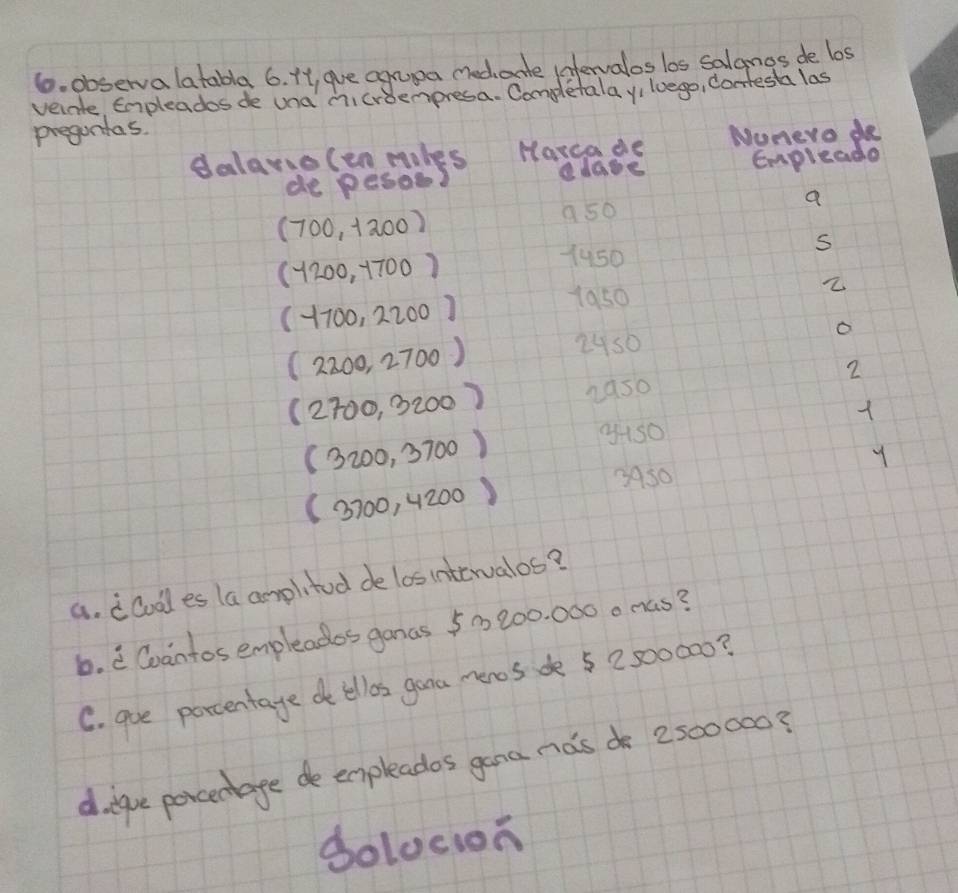 6. observa latabla 6.11, que agrupa mediante intervalos los salarios de los
veinte Empleados de una microempresa. Completala y, luego, contesta las
preguntas.
Salario (en miles de pesos) Marca de clase Numero de Empleado
(700, 1200) 950 9
(1200, 1700) 1450 5
(1700, 2200) 1950 2
(2200, 2700) 2450 0
(2700, 3200) 2950 2
(3200, 3700) 3450 1
(3700, 4200) 3950 1
a. ¿Cuál es la amplitud de los intervalos?
b. ¿Cuántos empleados ganas $3200.000 o mas?
C. que porcentage de ellos gana menos de $2500000?
d. ¿que porcentage de empleados gana más de 2500000?
Solución